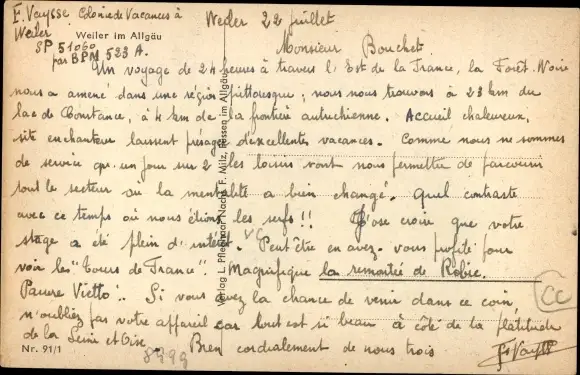 F. Vaysse Colonie de Vacances à
Weiler
Weiler im Allgäu
SP 51060
par BPM 523 A.
Weiler 22 juillet
Monsieur Bouchet.
Un voyage de 24 heures à travers l'Est de la France, la Forêt Noire
nous a amené dans une région pittoresque ; nous nous trouvons à 23 km du
lac de Constance, à 4 km de la frontière autrichienne. Accueil chaleureux,
site enchanteur laissent présager d'excellentes vacances. Comme nous ne sommes
de service qu'un jour sur 2 les loisirs vont nous permettre de parcourir
tout le secteur où la mentalité a bien changé. Quel contraste
avec ce temps où nous étions les serfs !! J'ose croire que votre
stage a été plein d'intérêt. Peut être en avez-vous profité pour
voir les "Tours de France" Magnifique la remontée de Robic.
Pauvre Vietto !.. Si vous avez la chance de venir dans ce coin,
n'oubliez pas votre appareil car tout est si beau à côté de la platitude
de la Seine et Oise. Bien cordialement de nous trois
F. Vaysse
CC
Nr. 91/1
Verlag L. Nachf. F. Milz, Füssen im Allgäu